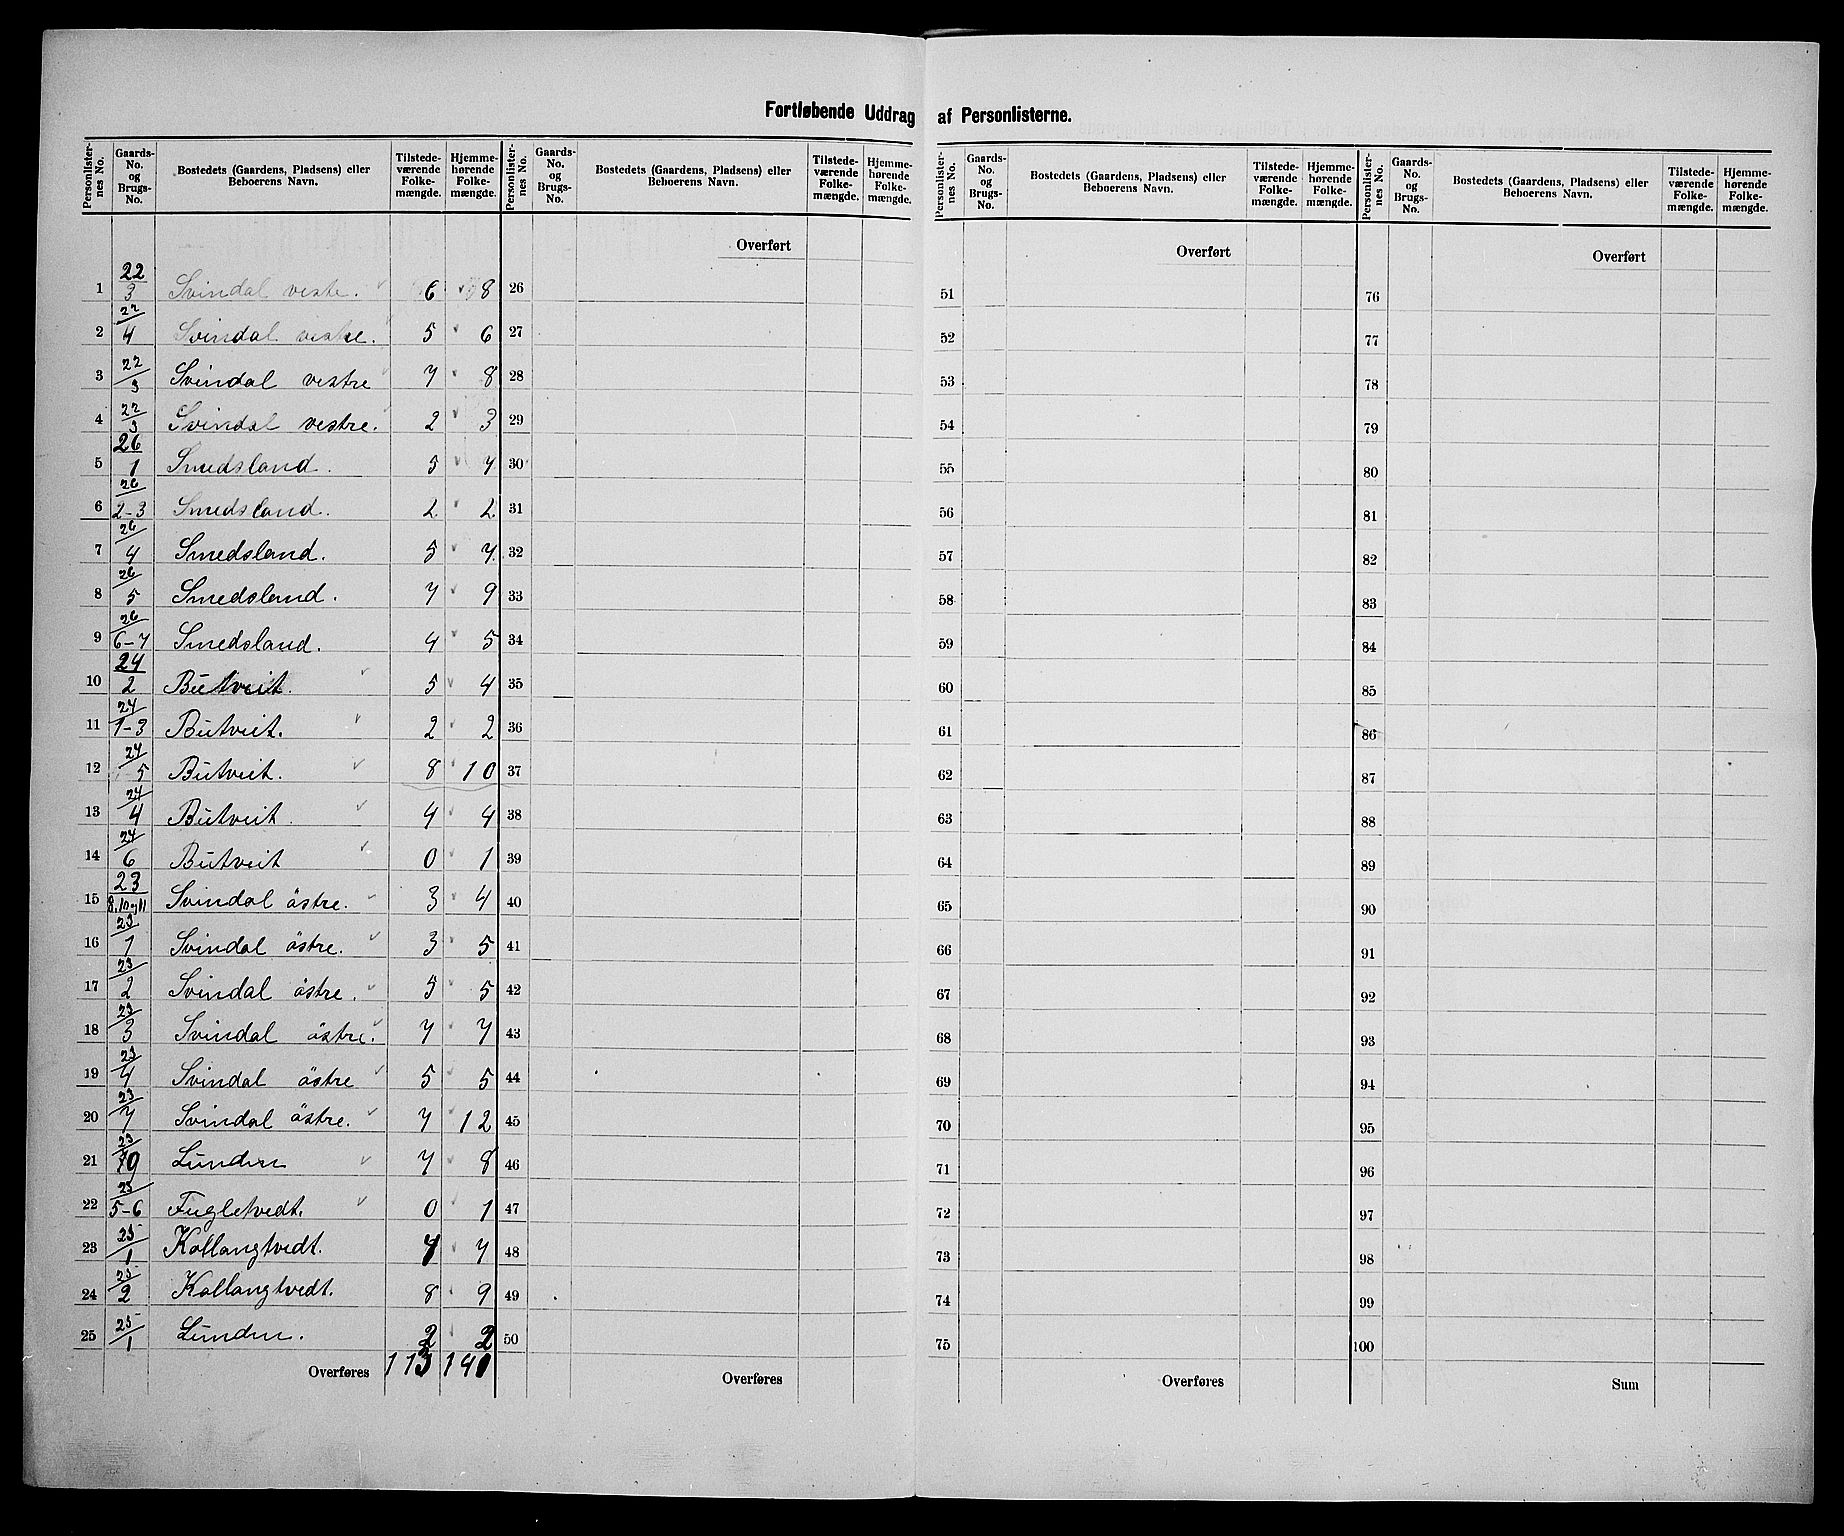 Fortløbende Uddrag af Personlisterne.
Personlisternes No. | Gaards-No. og Brugs-No. | Bostedets (Gaardens, Pladsens) eller Beboerens Navn. | Tilstedeværende Folkemængde. | Hjemmehørende Folkemængde.
1 | 22/3 | Svindal vestre. | 6 | 8
2 | 22/4 | Svindal vestre. | 5 | 6
3 | 22/3 | Svindal vestre | 7 | 8
4 | 22/3 | Svindal vestre. | 2 | 3
5 | 26/1 | Smedsland. | 5 | 7
6 | 26/2-3 | Smedsland. | 2 | 2
7 | 26/4 | Smedsland. | 5 | 7
8 | 26/5 | Smedsland. | 7 | 9
9 | 26/6-7 | Smedsland. | 4 | 5
10 | 24/2 | Butveit. | 5 | 4
11 | 24/1-3 | Butveit. | 2 | 2
12 | 24/5 | Butveit. | 8 | 10
13 | 24/4 | Butveit. | 4 | 4
14 | 24/6 | Butveit | 0 | 1
15 | 23/8.10og11 | Svindal östre. | 3 | 4
16 | 23/1 | Svindal östre. | 3 | 5
17 | 23/2 | Svindal östre. | 5 | 5
18 | 23/3 | Svindal östre. | 7 | 7
19 | 23/4 | Svindal östre | 5 | 5
20 | 23/7 | Svindal östre. | 7 | 12
21 | 23/9 | Lunden | 7 | 8
22 | 23/5-6 | Fugletvedt. | 0 | 1
23 | 25/1 | Kallangtvedt. | 4 | 7
24 | 25/2 | Kallangtvedt. | 8 | 9
25 | 25/1 | Lunden. | 2 | 2
Overføres 113 141
Personlisternes No. | Gaards-No. og Brugs-No. | Bostedets (Gaardens, Pladsens) eller Beboerens Navn. | Tilstedeværende Folkemængde. | Hjemmehørende Folkemængde.
Overført
26
27
28
29
30
31
32
33
34
35
36
37
38
39
40
41
42
43
44
45
46
47
48
49
50
Overføres
Personlisternes No. | Gaards-No. og Brugs-No. | Bostedets (Gaardens, Pladsens) eller Beboerens Navn. | Tilstedeværende Folkemængde. | Hjemmehørende Folkemængde.
Overført
51
52
53
54
55
56
57
58
59
60
61
62
63
64
65
66
67
68
69
70
71
72
73
74
75
Overføres
Personlisternes No. | Gaards-No. og Brugs-No. | Bostedets (Gaardens, Pladsens) eller Beboerens Navn. | Tilstedeværende Folkemængde. | Hjemmehørende Folkemængde.
Overført
76
77
78
79
80
81
82
83
84
85
86
87
88
89
90
91
92
93
94
95
96
97
98
99
100
Sum